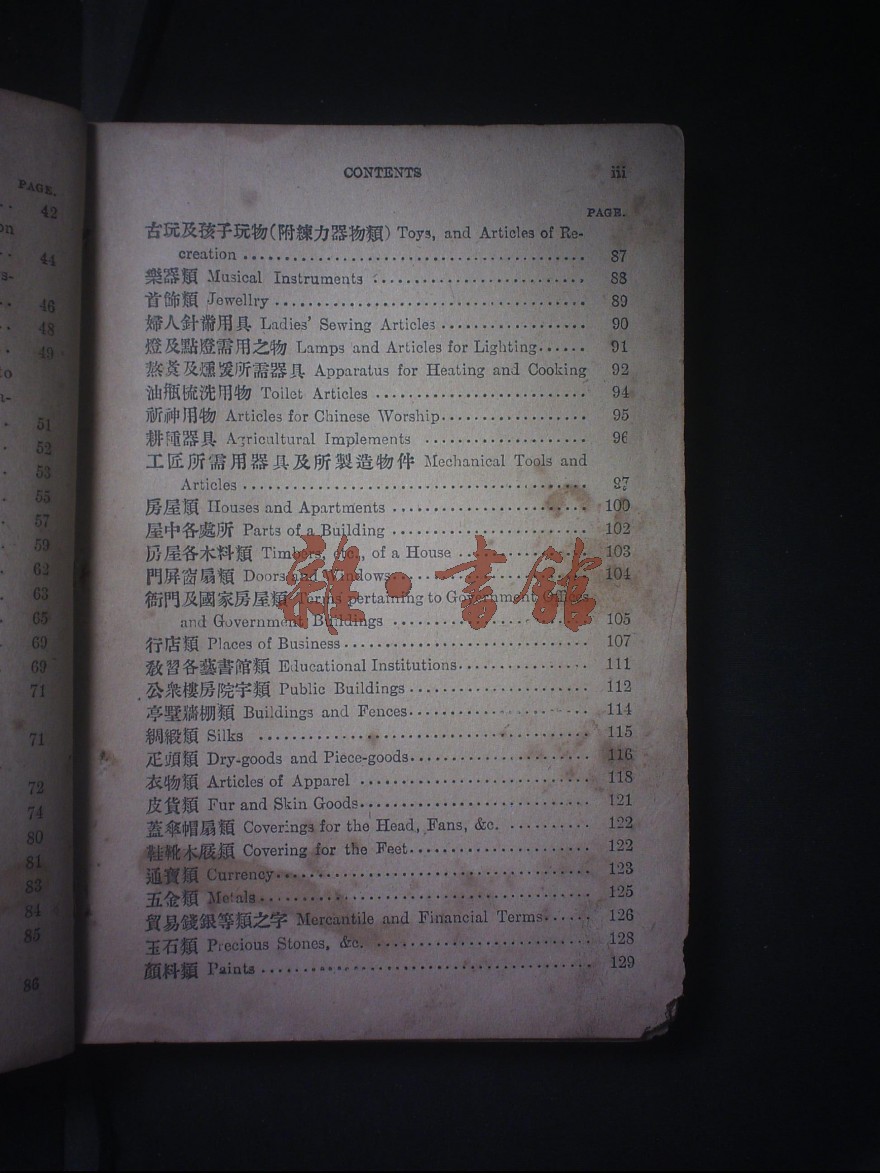 PAGE.
42
on
44
s-
46
48
49
to
n-
51
52
53
55
57
59
62
63
65
69
69
71
71
72
74
80
81
83
84
85
86
CONTENTS iii
PAGE.
古玩及孩子玩物(附練力器物類) Toys, and Articles of Re-
creation 87
樂器類 Musical Instruments 88
首飾類 Jewellry 89
婦人針黹用具 Ladies' Sewing Articles 90
燈及點燈需用之物 Lamps and Articles for Lighting 91
熬煑及燻煖所需器具 Apparatus for Heating and Cooking 92
油瓶梳洗用物 Toilet Articles 94
祈神用物 Articles for Chinese Worship 95
耕種器具 Agricultural Implements 96
工匠所需用器具及所製造物件 Mechanical Tools and
Articles 97
房屋類 Houses and Apartments 100
屋中各處所 Parts of a Building 102
房屋各木料類 Timbers, etc., of a House 103
門屏窗扇類 Doors and Windows 104
衙門及國家房屋類 Terms pertaining to Government Offices
and Government Buildings 105
行店類 Places of Business 107
敎習各藝書館類 Educational Institutions 111
公衆樓房院宇類 Public Buildings 112
亭墅墻棚類 Buildings and Fences 114
綢緞類 Silks 115
疋頭類 Dry-goods and Piece-goods 116
衣物類 Articles of Apparel 118
皮貨類 Fur and Skin Goods 121
蓋傘帽扇類 Coverings for the Head, Fans, &c. 122
鞋靴木屐類 Covering for the Feet 122
通寶類 Currency 123
五金類 Metals 125
貿易錢銀等類之字 Mercantile and Financial Terms 126
玉石類 Precious Stones, &c. 128
顏料類 Paints 129
雜·書館